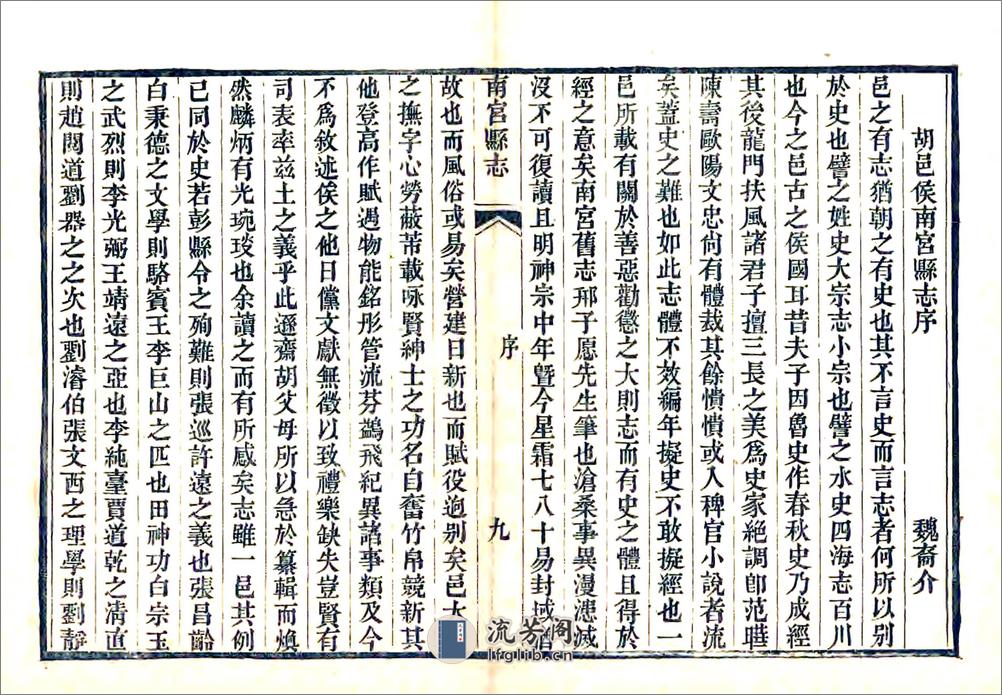 胡邑侯南宮縣志序 魏裔介
邑之有志猶朝之有史也其不言史而言志者何所以別
於史也譬之姓史大宗志小宗也譬之水史四海志百川
也今之邑古之侯國耳昔夫子因魯史作春秋史乃成經
其後龍門扶風諸君子擅三長之美爲史家絕調卽范曄
陳壽歐陽文忠尙有體裁其餘憒憒或入稗官小說者流
矣蓋史之難也如此志體不效編年擬史不敢擬經也一
邑所載有關於善惡勸懲之大則志而有史之體且得於
經之意矣南宮舊志邢子愿先生筆也滄桑事異漫漶滅
沒不可復讀且明神宗中年曁今星霜七八十易封域猶
南宮縣志 序 九
故也而風俗或易矣營建日新也而賦役逈別矣邑大
之撫字心勞蔽芾載咏賢紳士之功名自奮竹帛競新其
他登高作賦遇物能銘彤管流芬鷁飛紀異諸事類及今
不爲敘述俟之他日儻文獻無徵以致禮樂缺失豈賢有
司表率茲土之義乎此遜齋胡父母所以急於纂輯而煥
然麟炳有光琬琰也余讀之而有所感矣志雖一邑其例
已同於史若彭縣令之殉難則張巡許遠之義也張昌齡
白秉德之文學則駱賓王李巨山之匹也田神功白宗玉
之武烈則李光弼王靖遠之亞也李純臺賈道乾之清直
則趙閱道劉器之之次也劉濬伯張文西之理學則劉靜
流芳閣
lfglib.cn